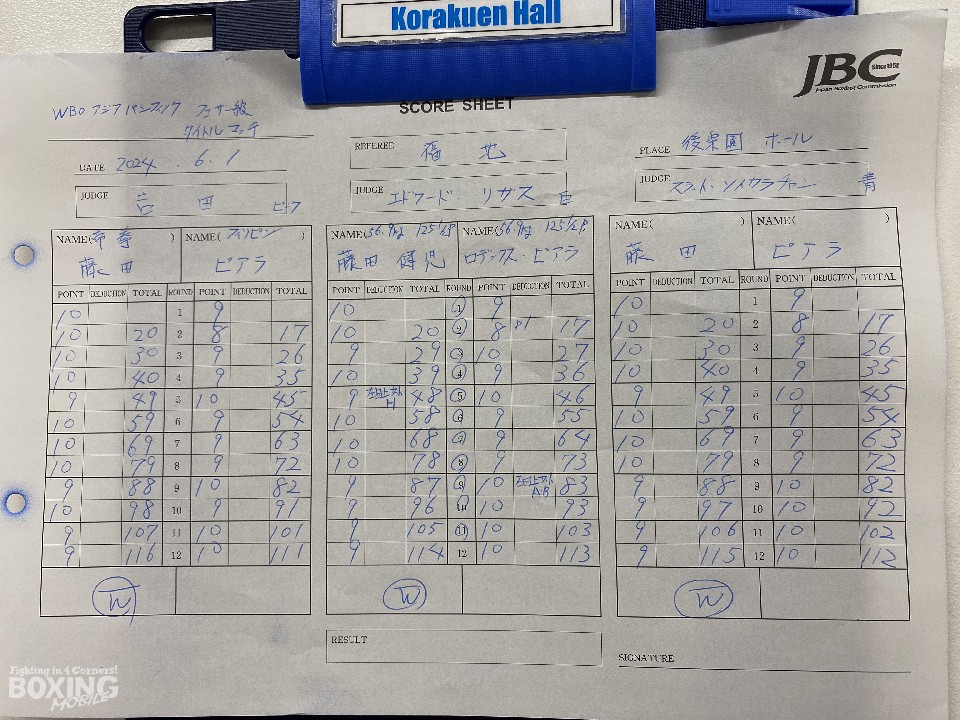 Korakuen Hall
JBC
Since 1952
Japan Boxing Commission
SCORE SHEET
WBO アジアパシフィック フェザー級
タイトルマッチ
DATE 2024 6.1
REFEREE 福地
PLACE 後楽園ホール
JUDGE 吉田
JUDGE エドワード・リガス 白
JUDGE 青
NAME(帝拳) NAME(フィリピン)
藤田 ピアラ
NAME(56.9kg 125 1/2P) NAME(56.9kg 125 1/2P)
藤田 健児 ロデックス・ピアラ
NAME( ) NAME( )
藤田 ピアラ
POINT DEDUCTION TOTAL ROUND POINT DEDUCTION TOTAL POINT DEDUCTION TOTAL ROUND POINT DEDUCTION TOTAL POINT DEDUCTION TOTAL ROUND POINT DEDUCTION TOTAL
10 1 9 10 1 9 10 1 9
10 20 2 8 17 10 20 2 8 17 10 20 2 8 17
10 30 3 9 26 9 29 3 10 27 10 30 3 9 26
10 40 4 9 35 10 39 4 9 36 10 40 4 9 35
9 49 5 10 45 9 48 5 10 46 9 49 5 10 45
10 59 6 9 54 10 58 6 9 55 10 59 6 9 54
10 69 7 9 63 10 68 7 9 64 10 69 7 9 63
10 79 8 9 72 10 78 8 9 73 10 79 8 9 72
9 88 9 10 82 9 87 9 10 83 9 88 9 10 82
10 98 10 9 91 9 96 10 10 93 9 97 10 10 92
9 107 11 10 101 9 105 11 10 103 9 106 11 10 102
9 116 12 10 111 9 114 12 10 113 9 115 12 10 112
W W W
RESULT
SIGNATURE
Fighting in 4 Corners!
BOXING
MOBILE